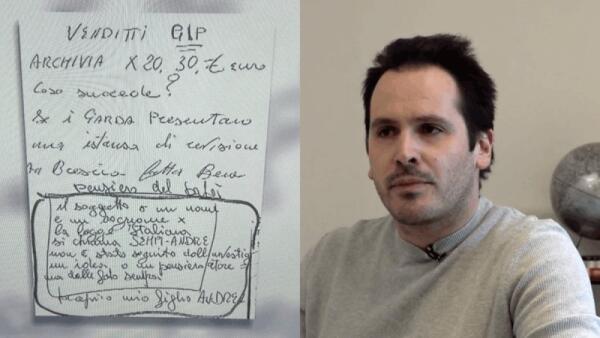 VENDITTI GIP
ARCHIVIA X 20. 30. € euro
Cosa succede?
Se i GARDA Presentano
una istanza di revisione
Brescia Bene
pensiero del
il soggetto o un nome
e un cognome x
la legge Italiana
si chiama SEMPI-ANDRE
non è stato seguito
un o un pensiero
ma dalle foto sembra
proprio mio figlio ANDREA